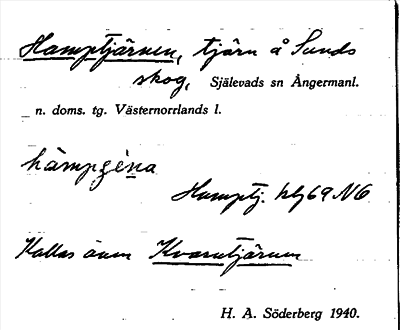 Hamptjärnen, tjärn å Sunds
skog, Själevads sn Ångermanl.
n. doms. tg. Västernorrlands l.
hàmpçèna
Hamptj. hlj 69 N6
Kallas även Kvarntjärnen
H. A. Söderberg 1940.